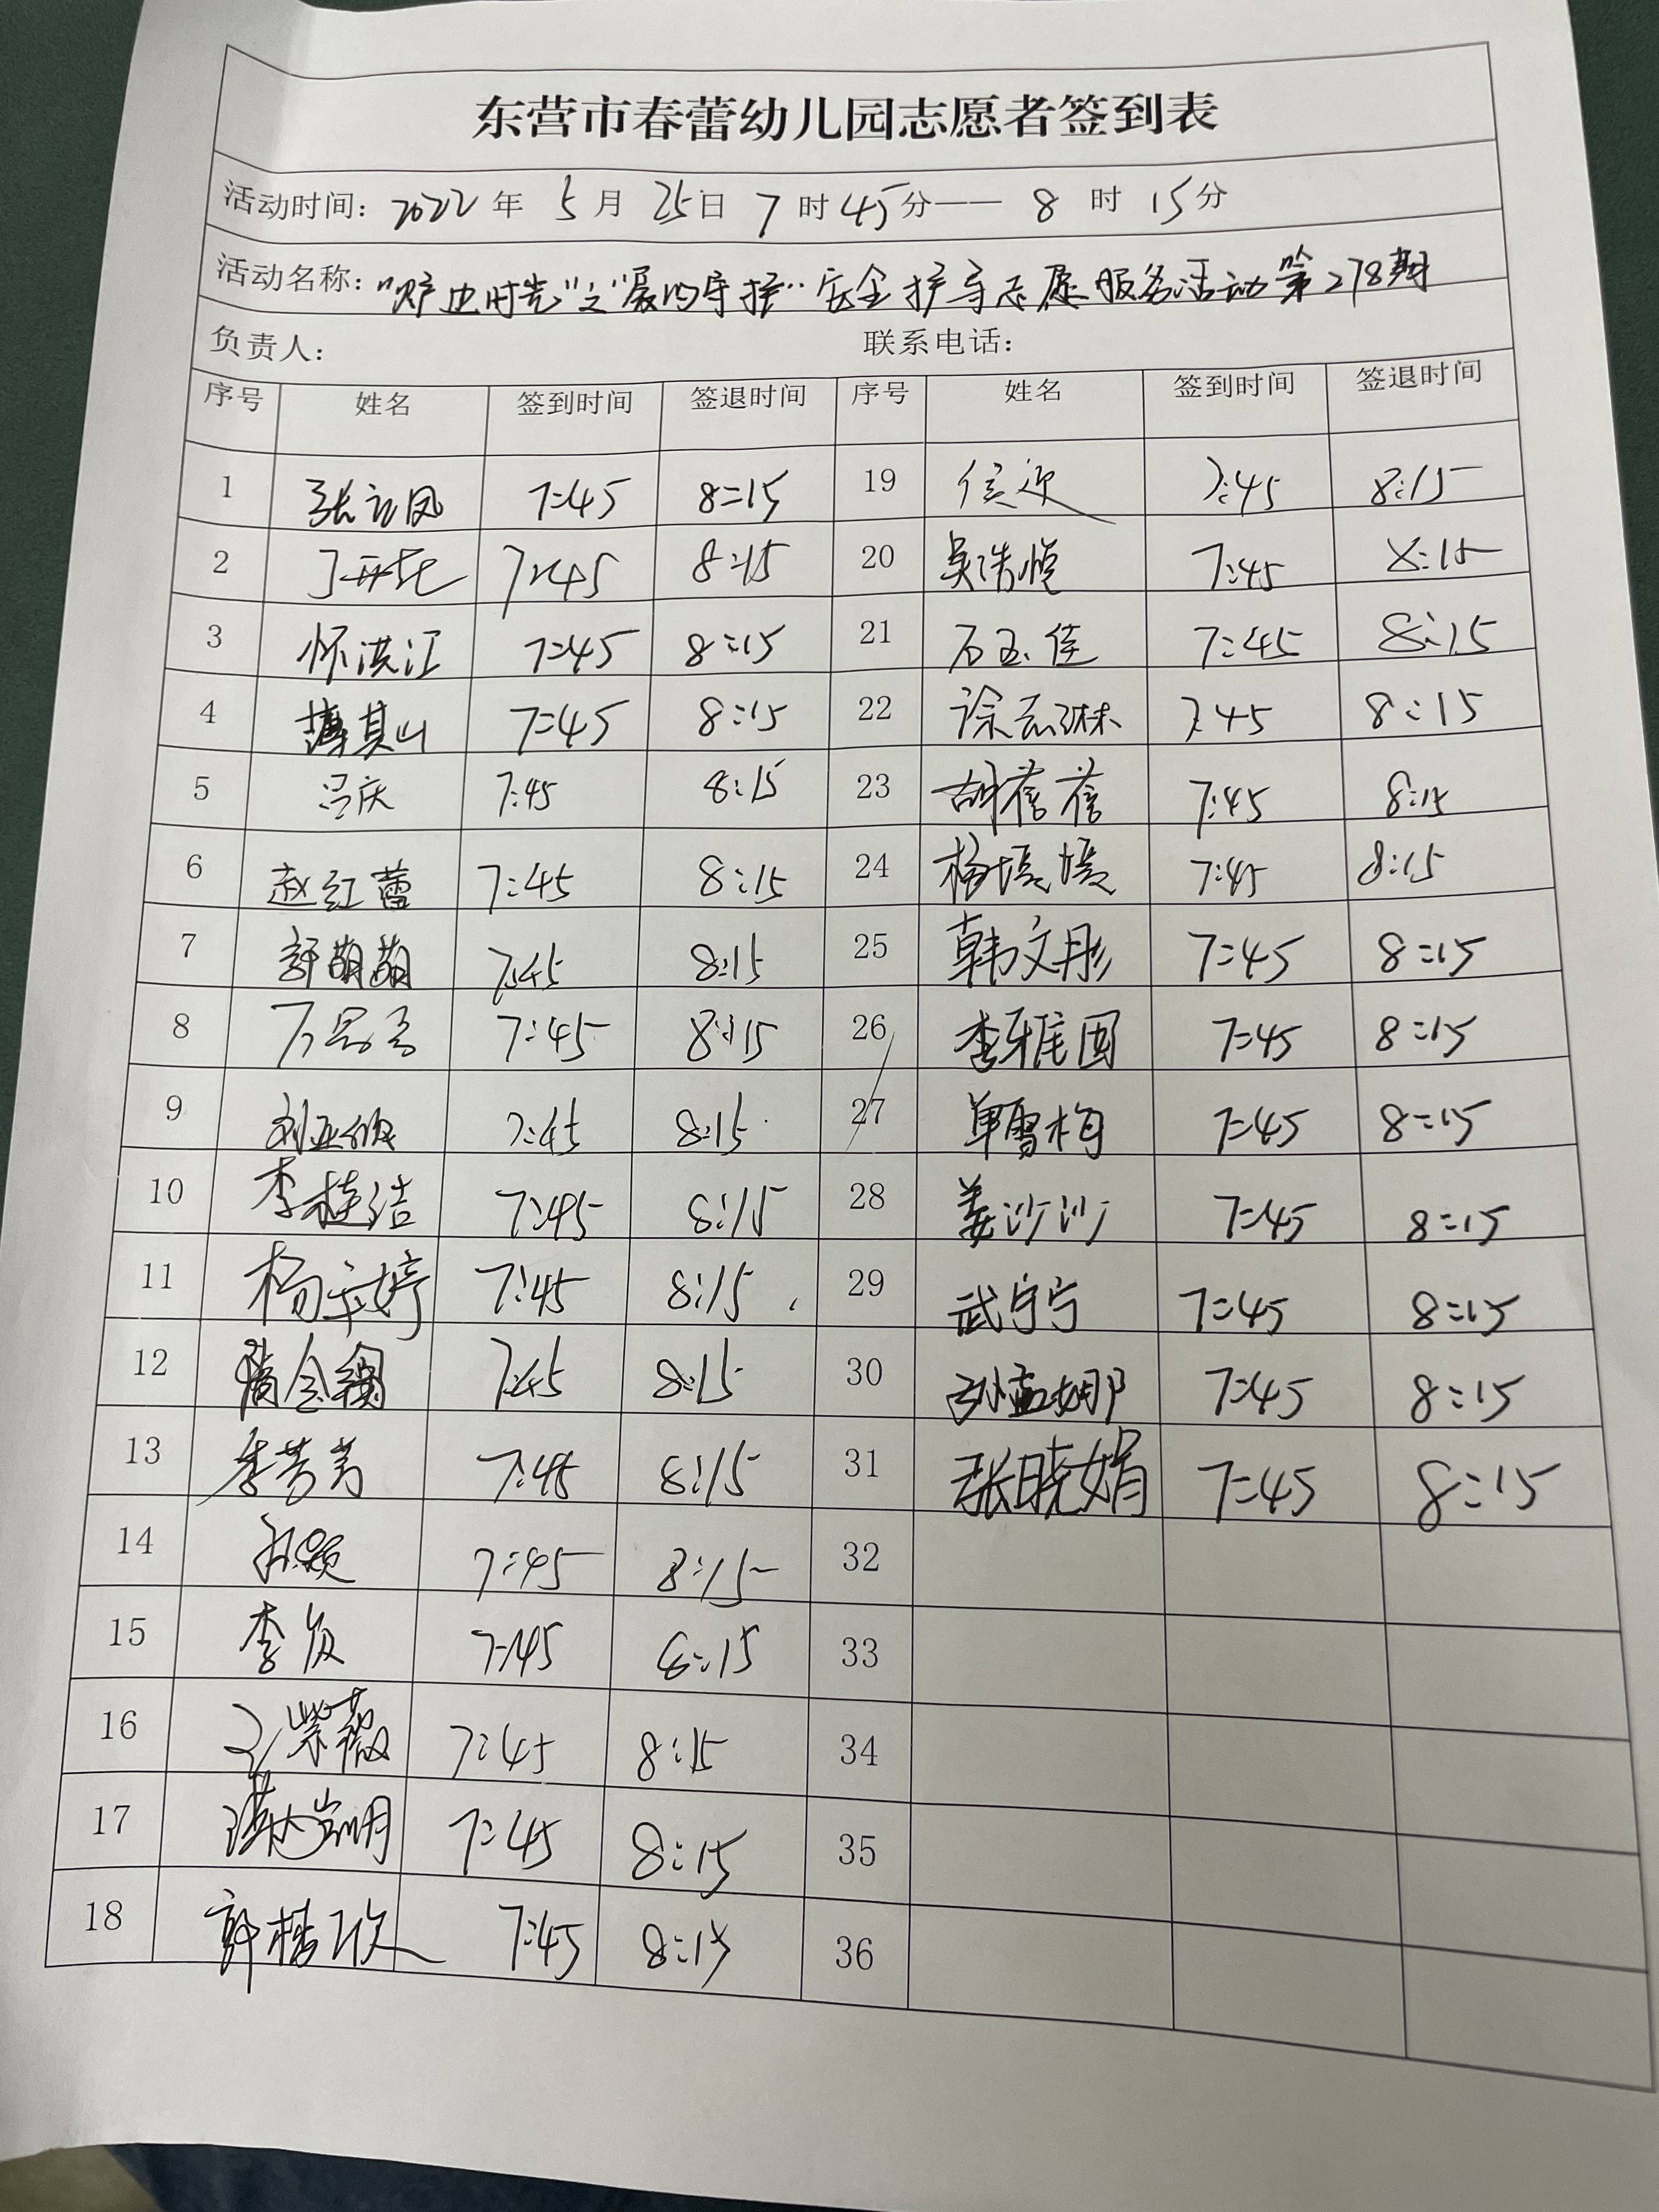 东营市春蕾幼儿园志愿者签到表
活动时间：2022年 5月 25日 7时45分—— 8时 15分
活动名称："炉边时光"之"爱的守护"安全护导志愿服务活动第278期
负责人： 联系电话：
序号 姓名 签到时间 签退时间 序号 姓名 签到时间 签退时间
1 张立凤 7:45 8:15 19 侯迎 7:45 8:15
2 7:45 8:15 20 吴浩悦 7:45 8:15
3 怀洪江 7:45 8:15 21 石玉佳 7:45 8:15
4 薄其山 7:45 8:15 22 7:45 8:15
5 吕庆 7:45 8:15 23 胡蓓蓓 7:45 8:15
6 赵红蕾 7:45 8:15 24 杨媛媛 7:45 8:15
7 许萌萌 7:45 8:15 25 韩文彤 7:45 8:15
8 7:45 8:15 26 李雅囡 7:45 8:15
9 7:45 8:15 27 单雪梅 7:45 8:15
10 李婕洁 7:45 8:15 28 姜沙沙 7:45 8:15
11 7:45 8:15 29 武宁宁 7:45 8:15
12 7:45 8:15 30 孙孟娜 7:45 8:15
13 李芳芳 7:45 8:15 31 张晓娟 7:45 8:15
14 孙颖 7:45 8:15 32
15 7:45 8:15 33
16 王紫薇 7:45 8:15 34
17 7:45 8:15 35
18 7:45 8:15 36